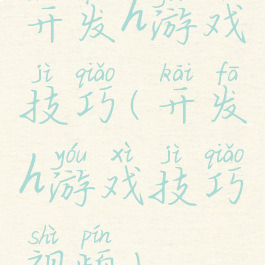 开发h游戏
jì qiǎo kāi fā
技巧(开发
yóu xì jì qiǎo
h游戏技巧
shì pín
视频)